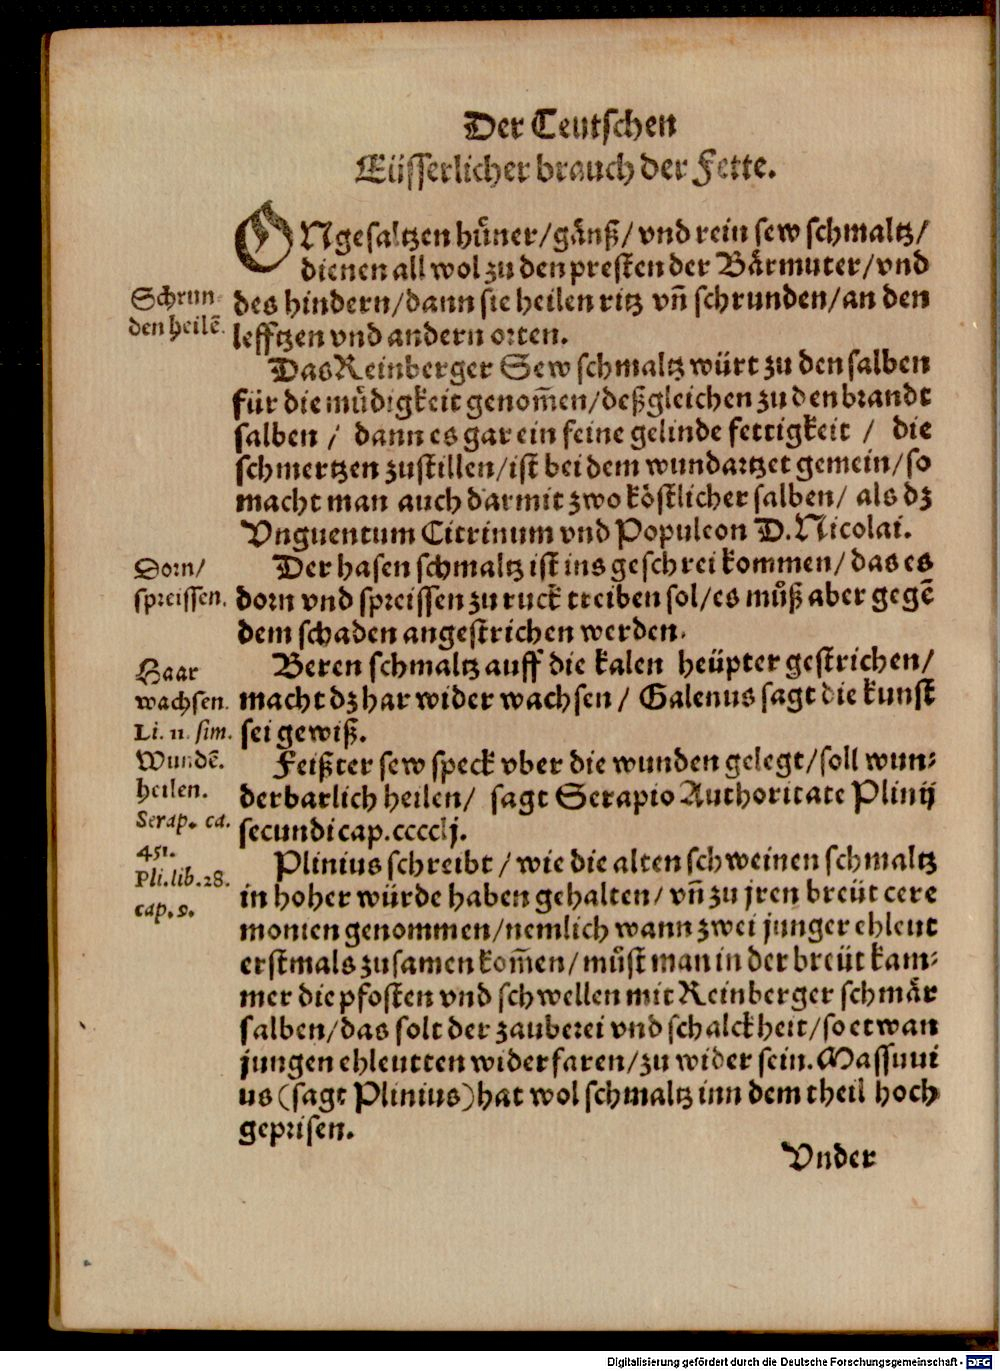 Der Teutschen
Eüsserlicher brauch der Fette.
ONgesaltzen hůner/gänß/vnd rein sew schmaltz/
dienen all wol zu den presten der Bärmuter/vnd
Schrun-
des hindern/dann sie heilen ritz vñ schrunden/an den
den heilẽ.
lefftzen vnd andern orten.
Das Reinberger Sew schmaltz würt zu den salben
für die můdigkeit genom̃en/deßgleichen zu den brandt
salben / dann es gar ein feine gelinde fettigkeit / die
schmertzen zustillen/ist bei dem wundartzet gemein/so
macht man auch darmit zwo köstlicher salben/ als dz
Vnguentum Citrinum vnd Populeon D. Nicolai.
Dorn/
Der hasen schmaltz ist ins geschrei kommen/das es
spreissen.
dorn vnd spreissen zu ruck treiben sol/es můß aber gegẽ
dem schaden angestrichen werden.
Haar
Beren schmaltz auff die kalen heüpter gestrichen/
wachsen.
macht dz har wider wachsen / Galenus sagt die kunst
Li. 11. sim.
sei gewiß.
Wundẽ.
Feißter sew speck vber die wunden gelegt/soll wun-
heilen.
derbarlich heilen/ sagt Serapio Authoritate Plinij
Serap. ca.
secundi cap.cccclj.
451.
Plinius schreibt / wie die alten schweinen schmaltz
Pli.lib.28.
in hoher würde haben gehalten/ vñ zu jren breüt cere
cap.9.
monien genommen/nemlich wann zwei junger ehleut
erstmals zusamen kom̃en/můst man in der breüt kam-
mer die pfosten vnd schwellen mit Reinberger schmär
salben/das solt der zauberei vnd schalckheit/so etwan
jungen ehleutten widerfaren/zu wider sein. Massuui
us (sagt Plinius) hat wol schmaltz inn dem theil hoch
geprisen.
Vnder
Digitalisierung gefördert durch die Deutsche Forschungsgemeinschaft - DFG